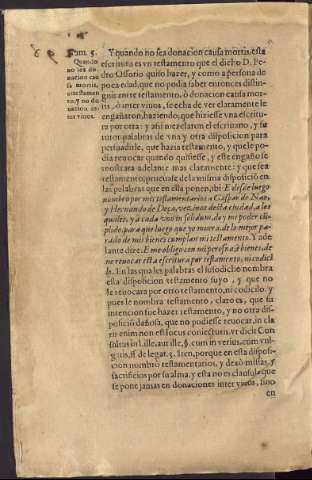 Num. 5.
Quando
no sea do
nacion cau
sa mortis,
es testamen
to, y no do
nacion in-
ter vivos.
Y quando no sea donacion causa mortis, esta
escritura es vn testamento que el dicho D. Pe-
dro Ossorio quiso hazer, y como a persona de
poca edad, que no podia saber entonces distin-
guir entre testamento, ò donacion causa mor-
tis, ò inter viuos, se echa de ver claramente le
engañaron, haziendo, que hiziesse vna escritu-
ra por otra: y assi mezclaron el escriuano, y su
palabras de vna y otra disposicion para
persuadirle, que hazia testamento, y que le po-
dia reuocar quando quisiesse, y este engaño se
mostrara adelante mas claramente: y que sea
testamento, prueuase de la misma disposició en
las palabras que en esta ponen, ibi: E desde luego
nombro por mis testamentarios a Gaspar de
y Hernando de vezinos desta ciudad, a los
quales, y a cada vno in solidum, doy mi poder cū-
plido, para que luego que yo muera, de lo mejor pa-
rado de mis bienes cumplan mi testamento. Y ade-
lante dize. E me obligo con mi persona, y bienes, de
no reuocar esta escritura por testamento, ni codici-
lo. En las quales palabras el susodicho nombra
esta disposicion testamento suyo, y que no
le reuocara por otro testamento, ni codicilo, y
pues le nombra testamento, claro es, que su
intencion fue hazer testamento, y no otra dis-
posició dañosa, que no pudiesse reuocar, in cla
ris enim non est locus coniecturis, vt dicit Con
sultus in l. ille, aut ille, §. cum in verbis, cum vul-
gatis, ff. de legat. 3. Iten, porque en esta disposi-
cion nombró testamentarios, y dexó missas, y
sacrificios por su alma, y esta no es clausula que
se pone jamas en donaciones inter viuos, sino
en